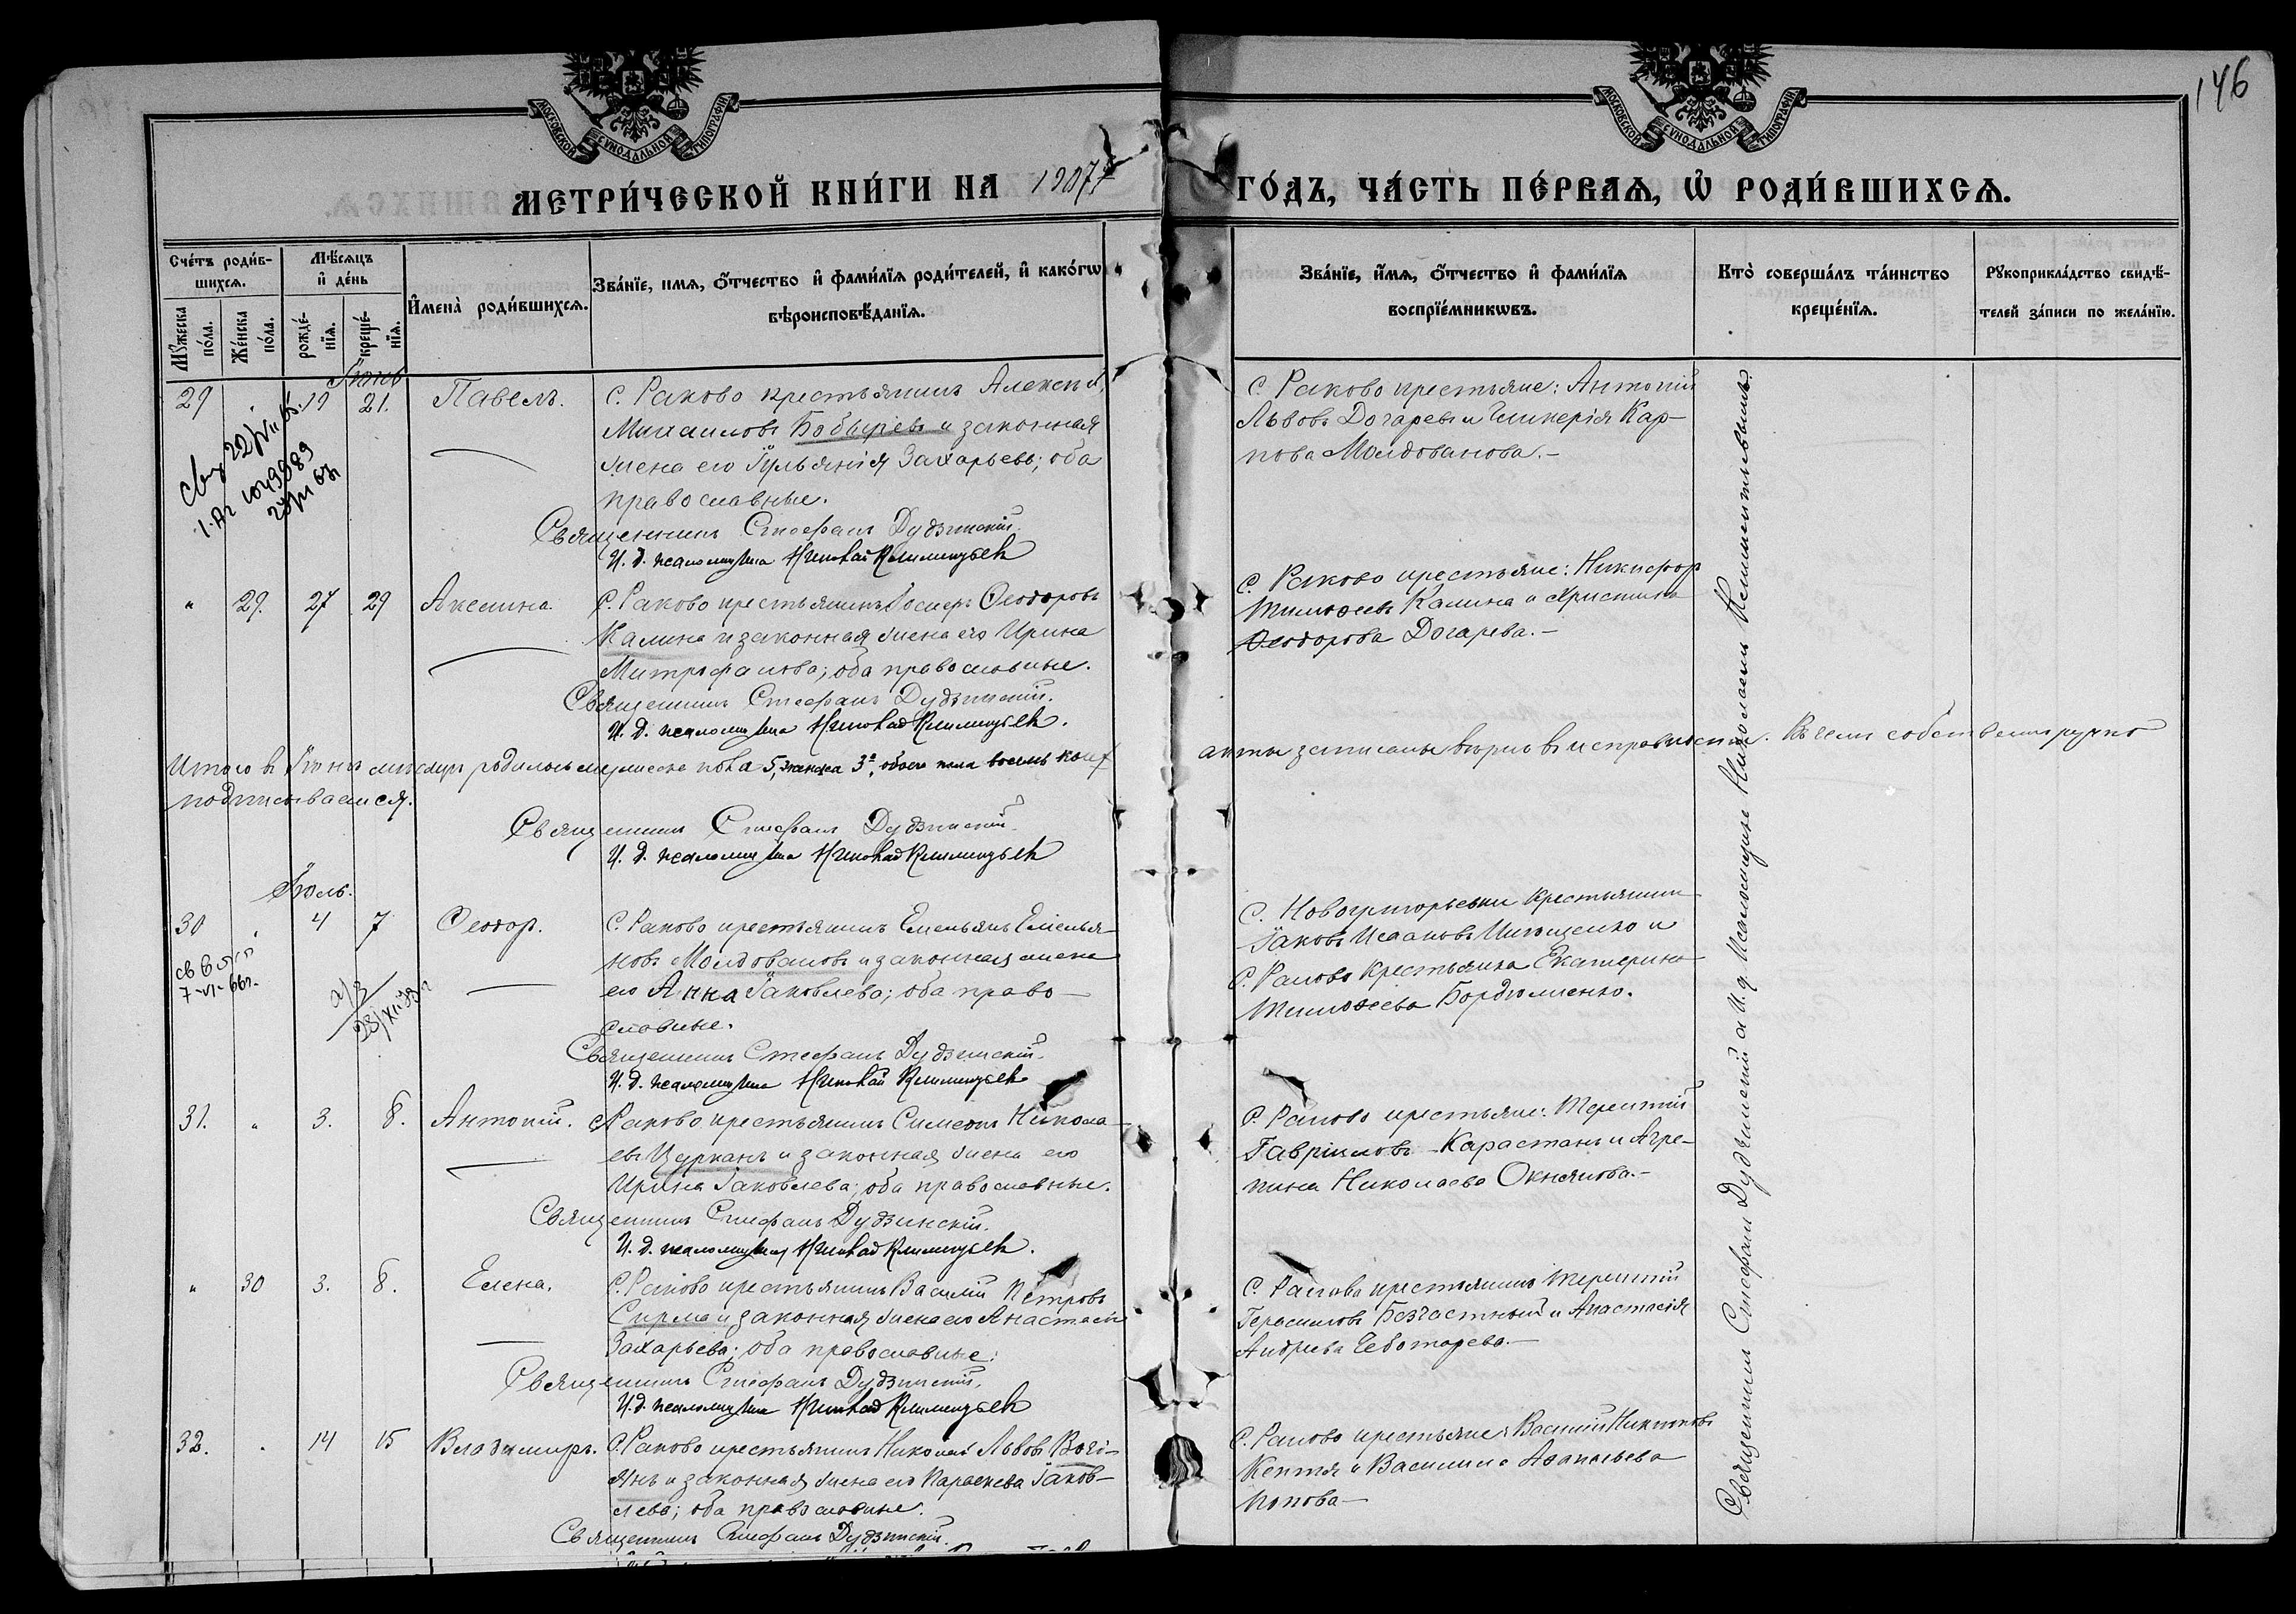 146
МОСКОВСКОЙ СУНОДАЛЬНОЙ ТИПОГРАФІИ
МОСКОВСКОЙ СУНОДАЛЬНОЙ ТИПОГРАФІИ
МЕТРИ́ЧЕСКОЙ КНИ́ГИ НА 1907
ГО́ДЪ, ЧА́СТЬ ПЕ́РВАѦ, Ѡ҆ РОДИ́ВШИХСѦ.
Сче́тъ роди́в-
шихсѧ.
Мꙋ́жеска
по́ла.
Же́нска
по́ла.
Мѣ́сѧцъ
и҆ де́нь
рожде́-
нїѧ.
креще́-
нїѧ.
И҆мена̀ роди́вшихсѧ.
Зва́нїе, имѧ, ѻ҆́тчество и҆ фами́лїѧ роди́телей, и҆ како́гѡ
вѣроисповѣ́данїѧ.
Зва́нїе, и҆́мѧ, ѻ҆́тчество и҆ фами́лїѧ
воспрїе́мникѡвъ.
Кто̀ соверша́лъ та́инство
креще́нїѧ.
Рꙋкоприкла́дство свидѣ́-
телей за́писи по жела́нїю.
Іюнь
29 19 21. Павелъ.
С. Раково крестьянинъ Алексѣй
Михаиловъ Бобыревъ и законная
жена его Іульянія Захарьева; оба
православные.
Священникъ Стефанъ Дудзинскій.
И. д. псаломщика Николай
С. Раково крестьяне: Антоній
Львовъ Догаревъ и Гликерія Кар-
пова Молдованова.–
" 29. 27 29 Акилина.
С. Раково крестьянинъ Іосифъ Ѳеодоровъ
Калина и законная жена его Ирина
Митрофанова; оба православные.
Священникъ Стефанъ Дудзинскій.
И. д. псаломщика Николай
С. Раково крестьяне: Никифор
Тимоѳеевъ Калина и Христина
Ѳеодорова Догарева.–
Итого въ Іюнѣ мѣсяцѣ родилось мужеска пола 5, женска 3, обоего пола восемь
акты записаны вѣрно въ исправности. Въ чемъ собственноручно
подписываемся.
Священникъ Стефанъ Дудзинскій.
И. д. псаломщика Николай
Іюль.
30 " 4 7 Ѳеодор.
7-VI-66г.
28/XII
С. Раково крестьянинъ Емельянъ Емелья-
новъ Молдовановъ и законная жена
его Анна Іаковлева; оба право-
славные.
Священникъ Стефанъ Дудзинскій.
И. д. псаломщика Николай
С. Новогригорьевки крестьянин
Іаковъ Исааковъ и
С. Раково крестьянка Екатерина
Тимоѳеева Бордюженко.
31. " 3. 8. Антоній.
С. Раково крестьянинъ Симеонъ Никола-
евъ Цурканъ и законная жена его
Ирина Іаковлева; оба православные.
Священникъ Стефанъ Дудзинскій.
И. д. псаломщика Николай
С. Раково крестьяне: Терентій
Гавріиловъ Карастанъ и Агре-
пина Николаева Окнянова.–
" 30 3. 8. Елена.
С. Раково крестьянинъ Василій Петровъ
Сирма и законная жена его Анастасія
Захарьева; оба православные.
Священникъ Стефанъ Дудзинскій.
И. д. псаломщика Николай
С. Ракова крестьянинъ Терентій
Герасимовъ Безчастный и Анастасія
Андреева Чеботарева.–
32. " 14 15 Владимиръ.
С. Раково крестьянинъ Николай Львовъ
и законная жена его Параскева Іаков-
лева; оба православные.
Священникъ Стефанъ Дудзинскій.
С. Раково крестьяне: Василій
Кептя и Василиса Аѳанасьева
Попова–
Священникъ Стефанъ Дудзинскій а И. д. псаломщика Николаемъ